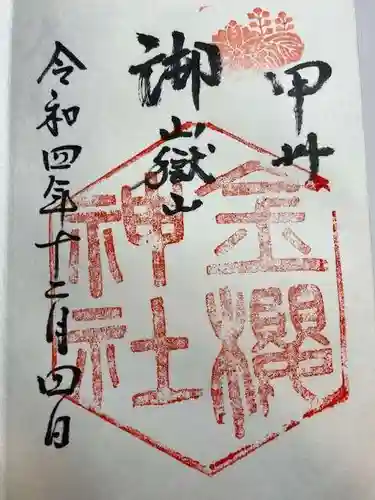 甲州
御嶽山
金櫻神社
令和四年十二月四日